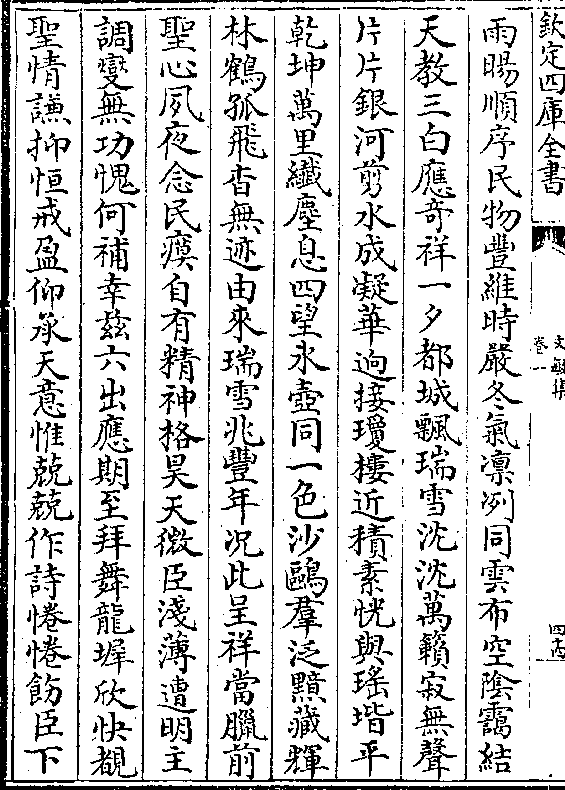 欽定四庫全書
文敏集
卷一
四十六
雨暘順序民物豐維時嚴冬氣凛冽同雲布空隂靄結
天教三白應竒祥一夕都城飄瑞雪沈沈萬籟寂無聲
片片銀河剪水成凝華逈接瓊樓近積素恍與瑤堦平
乾坤萬里纖塵息四望氷壺同一色沙鷗羣泛黯藏輝
林鶴孤飛杳無迹由來瑞雪兆豐年况此呈祥當臘前
聖心夙夜念民瘼自有精神格昊天微臣淺薄遭明主
調變無功愧何補幸兹六出應期至拜舞龍墀欣快覩
聖情謙抑恒戒盈仰承天意惟兢兢作詩惓惓飭臣下